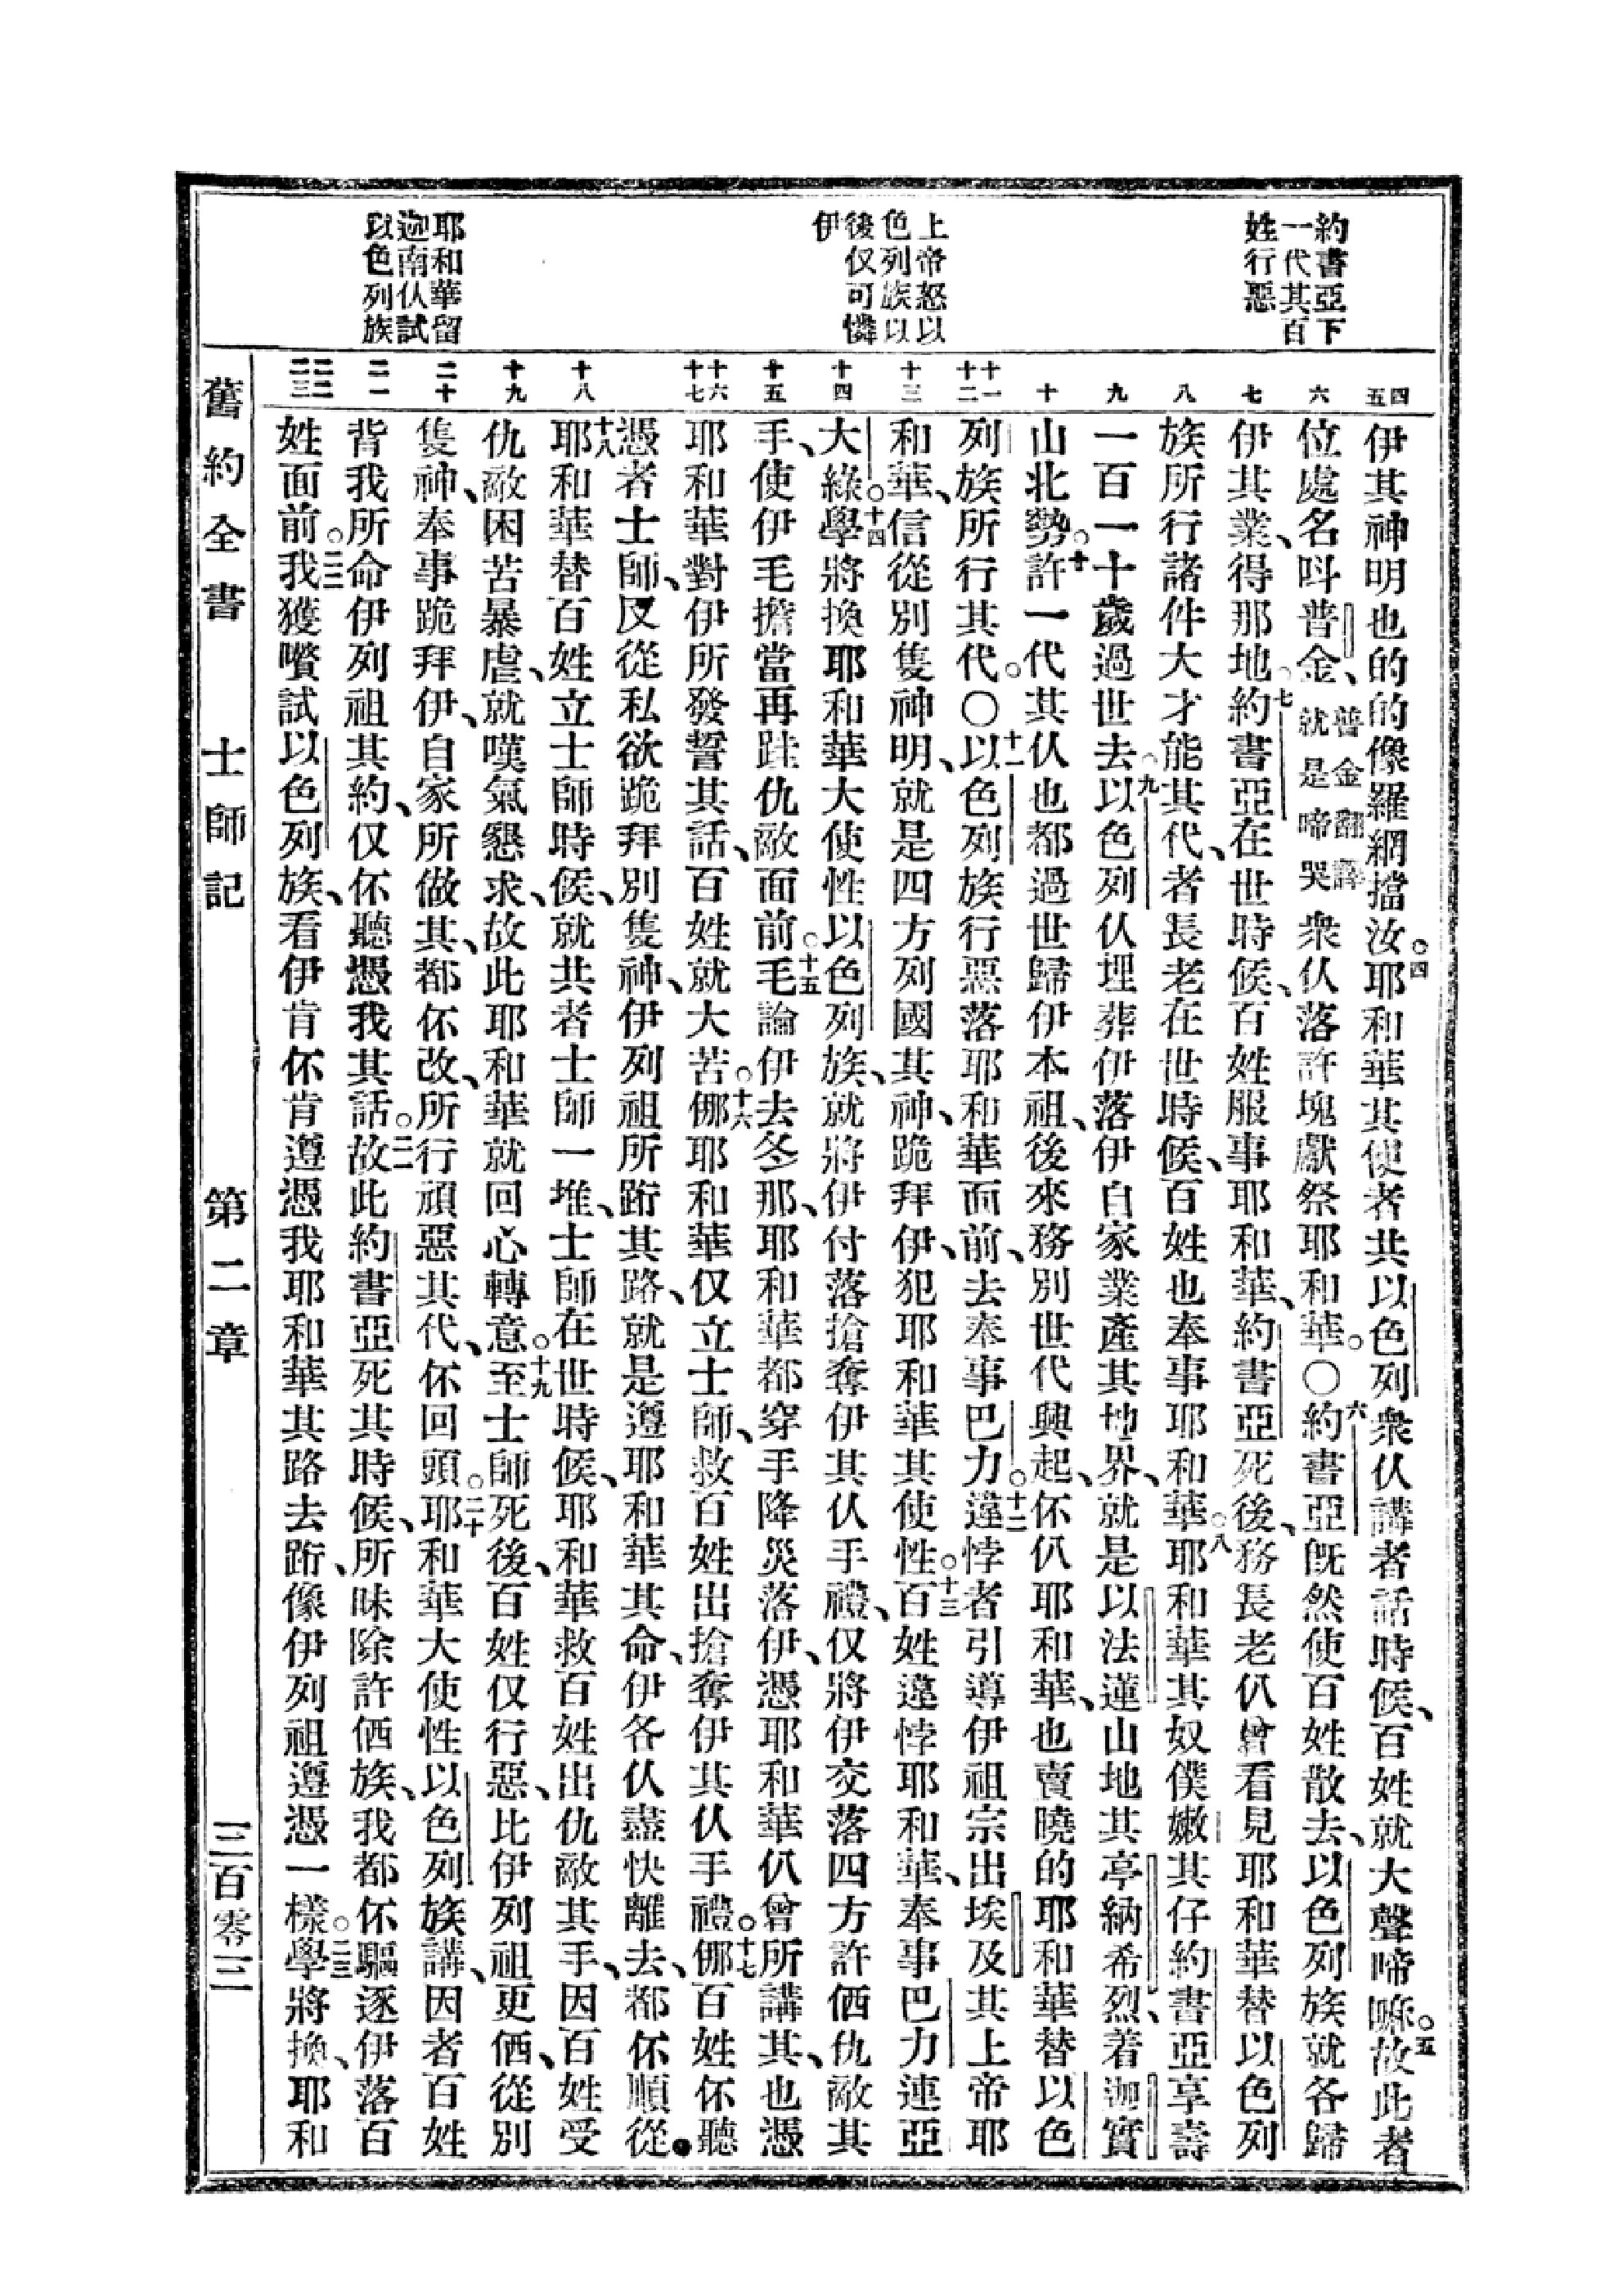 約書亞下
一代其百
姓行惡
上帝怒以
色列族以
後仅可憐
伊
耶和華留
迦南仈試
以色列族
四 五 六 七 八 九 十 十一 十二 十三 十四 十五 十六 十七 十八 十九 二十 二一 二二 二三
伊其神明也的的像羅網擋汝。四耶和華其使者共以色列衆仈講者話時候、百姓就大聲啼嘛。五故此者
位處名呌普金、普金翻譯就是啼哭衆仈落許塊獻祭耶和華。〇六約書亞旣然使百姓散去、以色列族就各歸
伊其業、得那地。七約書亞在世時候、百姓服事耶和華、約書亞死後、務長老仈曾看見耶和華替以色列
族所行諸件大才能其代、者長老在世時候、百姓也奉事耶和華。八耶和華其奴僕嫩其仔約書亞享壽
一百一十歲過世去。九以色列仈埋葬伊落伊自家業產其地界、就是以法蓮山地其亭納希烈、着迦實
山北勢。十許一代其仈也都過世歸伊本祖、後來務別世代興起、伓仈耶和華、也賣曉的耶和華替以色
列族所行其代。〇十一以色列族行惡落耶和華面前、去奉事巴力。十二違悖者引導伊祖宗出埃及其上帝耶
和華、信從別隻神明、就是四方列國其神、跪拜伊、犯耶和華其使性。十三百姓違悖耶和華、奉事巴力連亞
大綠。十四學將換耶和華大使性以色列族、就將伊付落搶奪伊其仈手禮、仅將伊交落四方許𠉞仇敵其
手、使伊毛擔當再跓仇敵面前。十五毛論伊去冬那、耶和華都穿手降災落伊、憑耶和華仈曾所講其、也憑
耶和華對伊所發誓其話、百姓就大苦。十六㑚耶和華仅立士師、救百姓出搶奪伊其仈手禮。十七㑚百姓伓聽
憑者士師、反從私欲跪拜別隻神、伊列祖所跕其路、就是遵耶和華其命、伊各仈盡快離去、都伓順從。
十八耶和華替百姓立士師時候、就共者士師一堆、士師在世時候、耶和華救百姓出仇敵其手、因百姓受
仇敵困苦暴虐、就嘆氣懇求、故此耶和華就回心轉意。十九至士師死後、百姓仅行惡、比伊列祖更𠉞、從別
隻神、奉事跪拜伊、自家所做其、都伓改、所行頑惡其代、伓回頭。二十耶和華大使性以色列族講、因者百姓
背我所命伊列祖其約、仅伓聽憑我其話。二一故此約書亞死其時候、所昧除許𠉞族、我都伓驅逐伊落百
姓面前。二二我獲囋試以色列族、看伊肯伓肯遵憑我耶和華其路去跕、像伊列祖遵憑一樣。二三學將換、耶和
舊約全書 士師記 第二章 三百零三